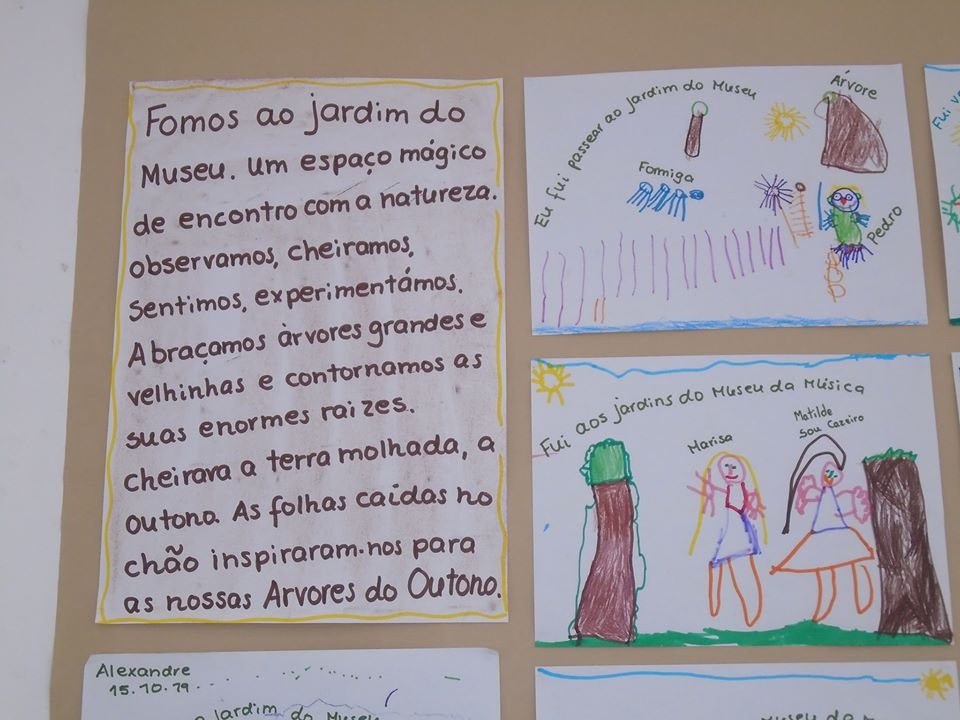 Fomos ao jardim do
Museu. Um espaço mágico
de encontro com a natureza.
observamos, cheiramos,
sentimos, experimentámos.
Abraçamos àrvores grandes e
velhinhas e contornamos as
suas enormes raizes.
cheirava a terra molhada, a
outono. As folhas caídas no
chão inspiraram-nos para
as nossas Arvores do Outono.
Eu fui passear ao jardim do Museu
Árvore
Formiga
Pedro
Fui aos jardins do Museu da Música
Marisa
Matilde
Sou Cazeiro
Fui
Alexandre
15.10.19
jardim do Museu